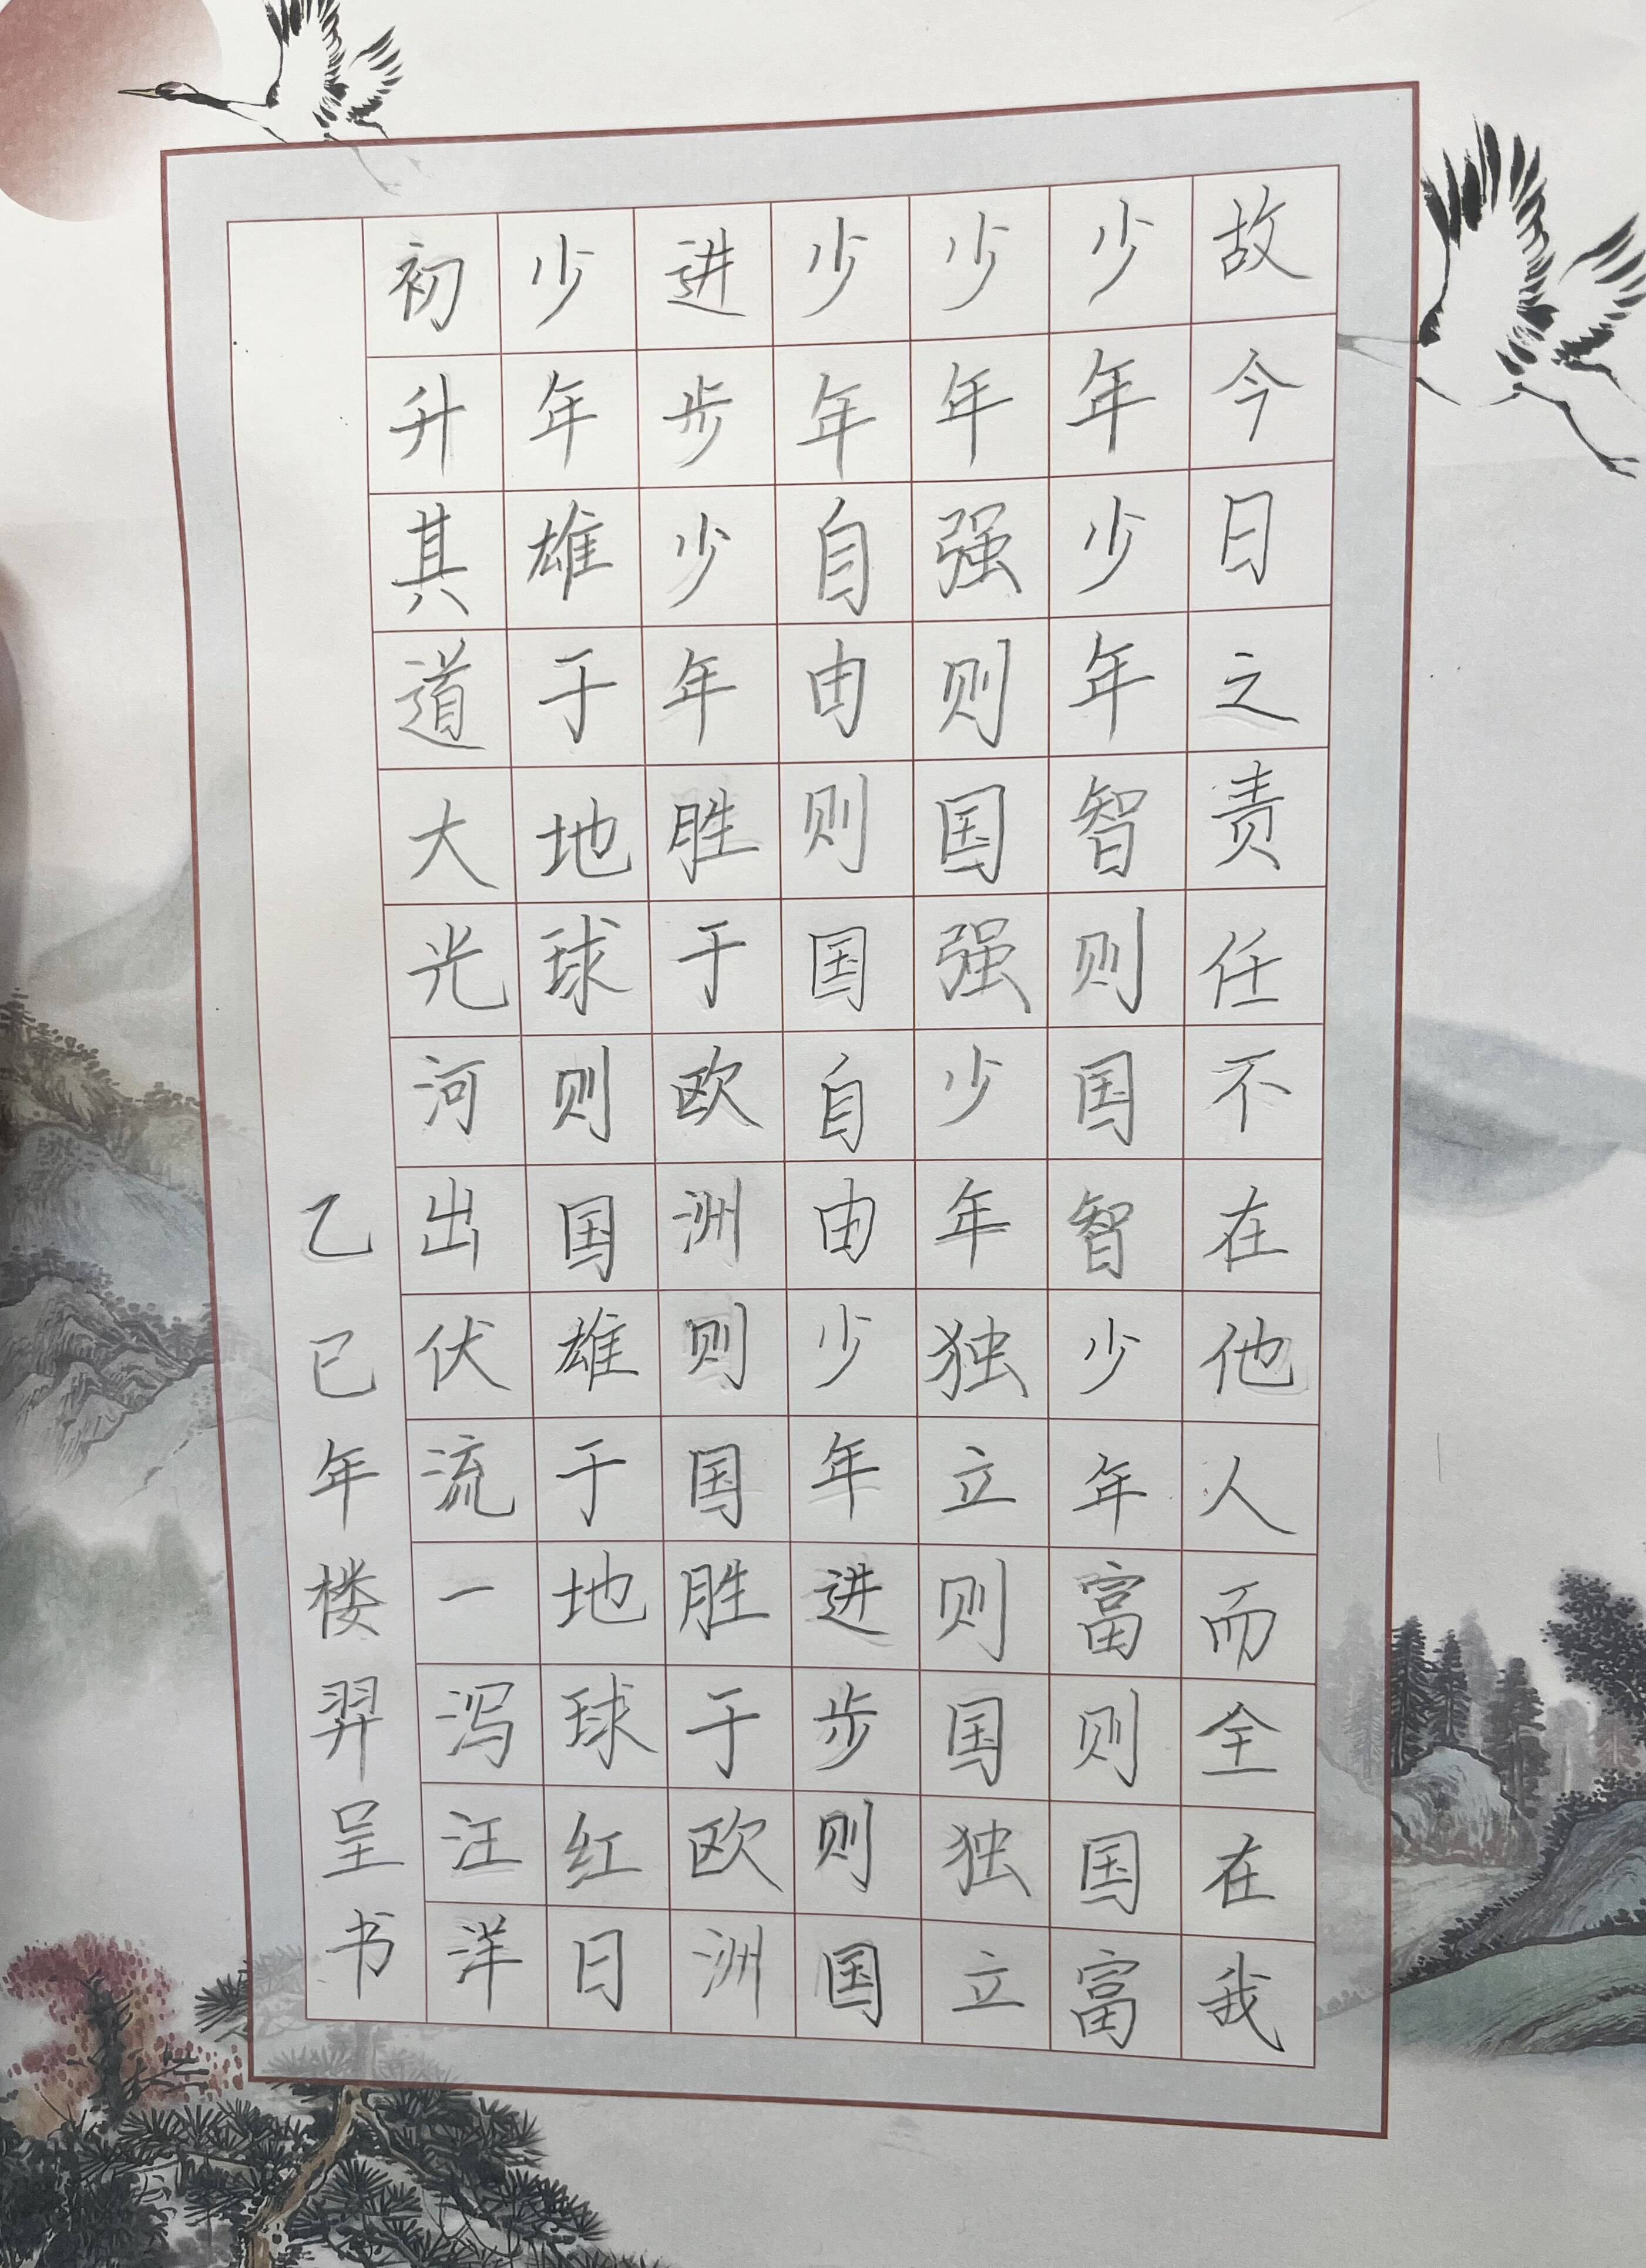 故今日之责任不在他人而全在我
少年少年智则国智少年富则国富
少年强则国强少年独立则国独立
少年自由则国自由少年进步则国
进步少年胜于欧洲则国胜于欧洲
少年雄于地球则国雄于地球红日
初升其道大光河出伏流一泻汪洋
乙巳年楼羿呈书